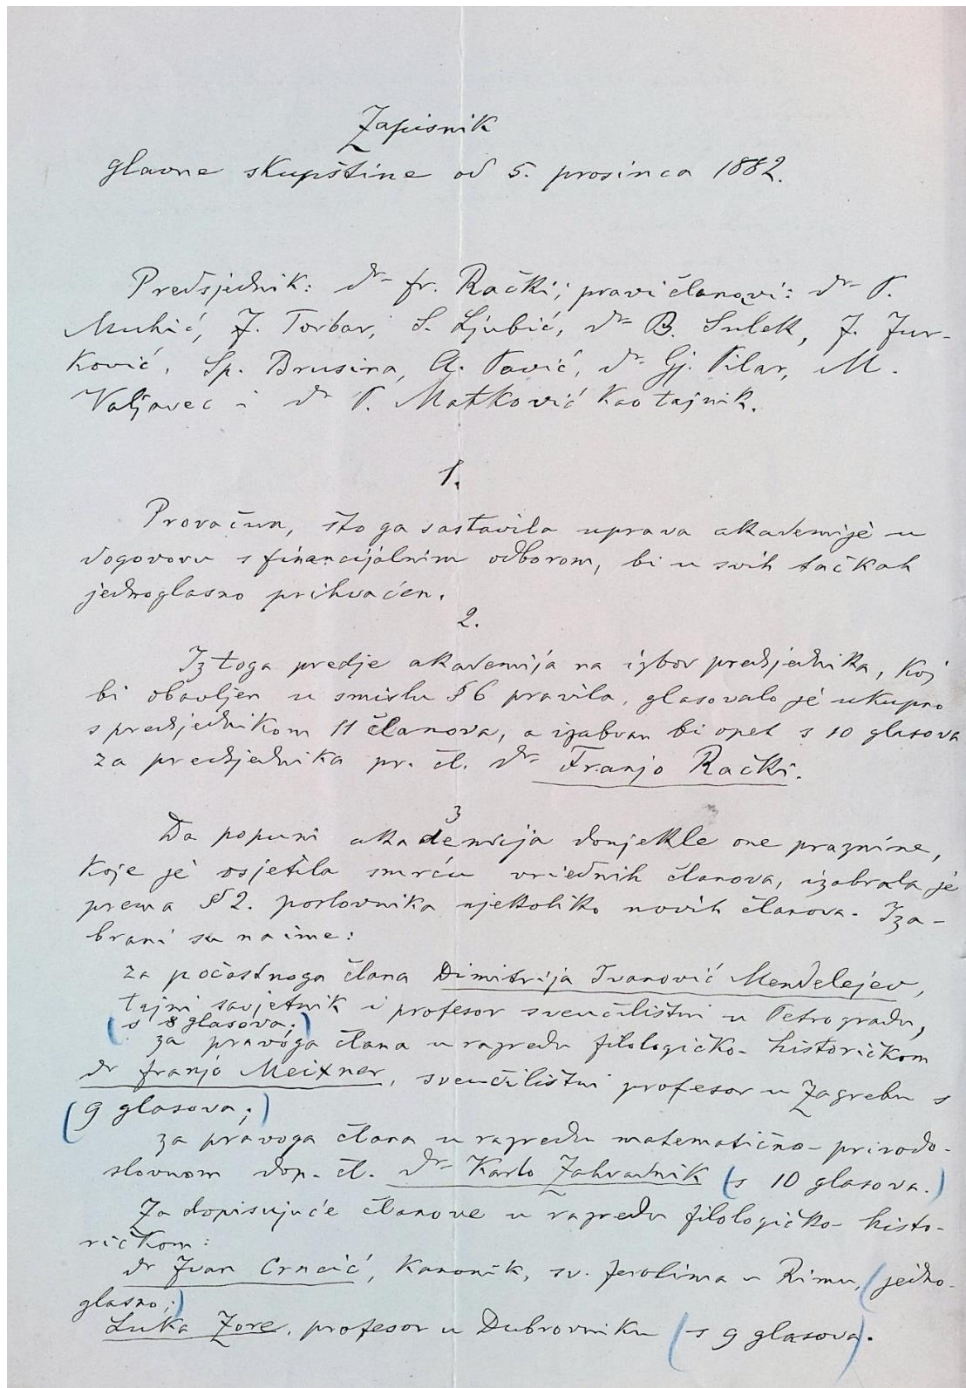 Zapisnik
glavne skupštine od 5. prosinca 1882.
Predsjednik: dr fr. Rački; pravi članovi: dr P.
Muhić, J. Torbar, S. Ljubić, dr B. Šulek, J. Jur-
ković, Sp. Brusina, A. Pavić, dr Gj. Pilar, M.
Valjavec i dr P. Matković kao tajnik.
1.
Proračun, što ga sastavila uprava akademije u
dogovoru s financijalnim odborom, bi u svih tačkah
jednoglasno prihvaćen.
2.
Iz toga predje akademija na izbor predsjednika, koj
bi obavljen u smislu §6 pravila, glasovalo je ukupno
s predsjednikom 11 članova, a izabran bi opet s 10 glasova
za predsjednika pr. čl. dr Franjo Rački.
3
Da popuni akademija donjekle one praznine,
koje je osjetila smrću vriednih članova, izabrala je
prema §2. poslovnika njekoliko novih članova. Iza-
brani su naime:
za počastnoga člana Dimitrija Ivanović Mendelejev,
tajni savjetnik i profesor sveučilištni u Petrogradu,
(s 8 glasova;)
za pravoga člana u razredu filologičko-historičkom
dr franjo Meixner, sveučilištni profesor u Zagrebu s
(9 glasova;)
za pravoga člana u razredu matematično-prirodo-
slovnom dop. čl. dr Karlo Zahradnik (s 10 glasova.)
Za dopisujuće članove u razredu filologičko-histo-
ričkom:
dr Ivan Crnčić, kanonik, sv. Jerolima u Rimu, (jedno-
glasno;)
Luka Zore, profesor u Dubrovniku (s 9 glasova).